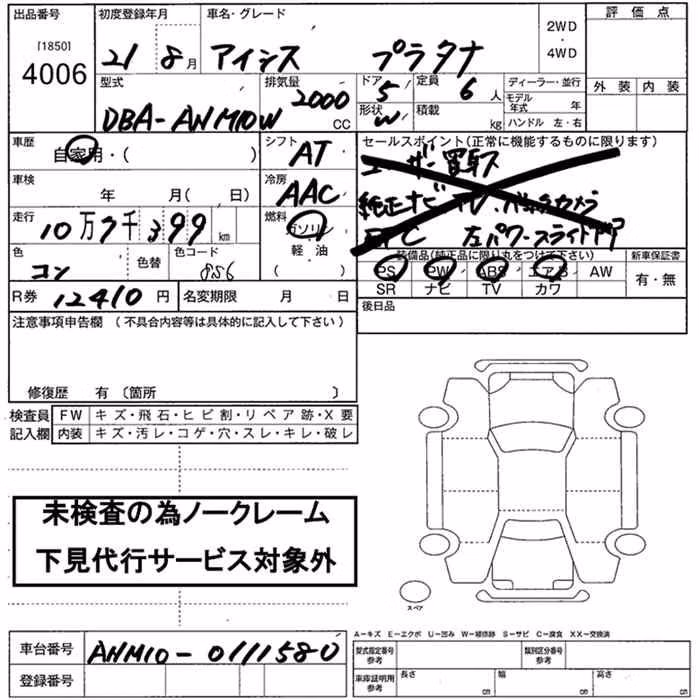 出品番号
[1850]
4006
初度登録年月
21 8月
車名・グレード
アイシス プラタナ
2WD
・
4WD
評価点
外装 内装
型式
DBA-ANM10W
排気量
2000 CC
ドア
5
形状
W
定員
6人
積載
kg
ディーラー・並行
モデル年式 年
ハンドル 左・右
車歴
自家用・( )
シフト
AT
セールスポイント(正常に機能するものに限ります)
ユーザー買取ス
純正ナビ TV、バックカメラ
ETC 左パワースライドドア
車検
年 月( 日)
冷房
AAC
走行
10万7千399km
燃料
ガソリン
軽油
( )
色
コン
色替
色コード
8S6
装備品(純正品に限り丸をつけて下さい)
PS PW ABS エアB AW
SR ナビ TV カワ
新車保証書
有・無
R券 12410円
名変期限 月 日
後日品
注意事項申告欄 (不具合内容等は具体的に記入して下さい)
修復歴 有 〔箇所 〕
検査員
記入欄
FW キズ・飛石・ヒビ割・リペア跡・X要
内装 キズ・汚レ・コゲ・穴・スレ・キレ・破レ
未検査の為ノークレーム
下見代行サービス対象外
スペア
A−キズ E−エクボ U−凹み W−補修跡 S−サビ C−腐食 XX−交換済
車台番号
ANM10-0111580
登録番号
型式指定番号
参考
類別区分番号
参考
車庫証明用
参考
長さ cm
幅 cm
高さ cm